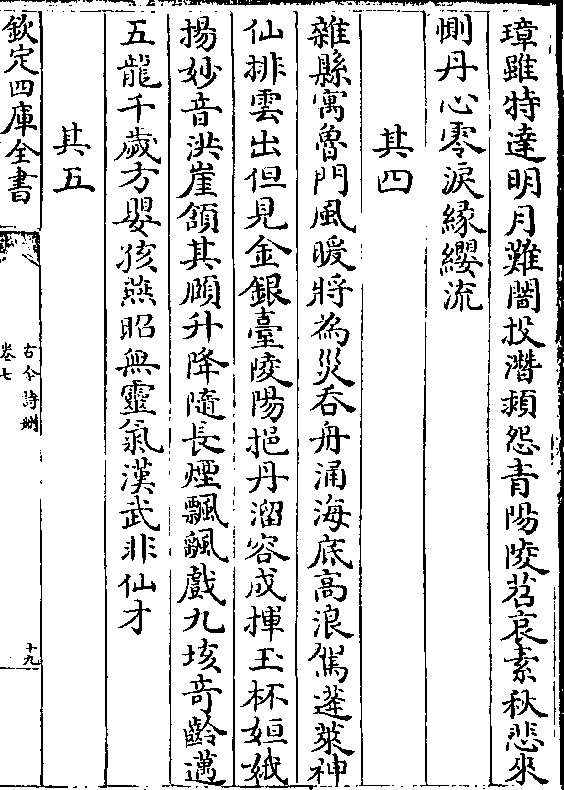 璋雖特達明月難闇投潛頴怨青陽陵苕哀素秋悲來
惻丹心零淚緣纓流
其四
雜縣寓魯門風暖將為災吞舟涌海底高浪駕蓬萊神
仙排雲出但見金銀臺陵陽挹丹溜容成揮玉杯姮娥
揚妙音洪崖頷其頤升降隨長煙飄颻戲九垓奇齡邁
五龍千歲方嬰孩燕昭無靈氣漢武非仙才
其五
欽定四庫全書
古今詩刪
卷七
十九